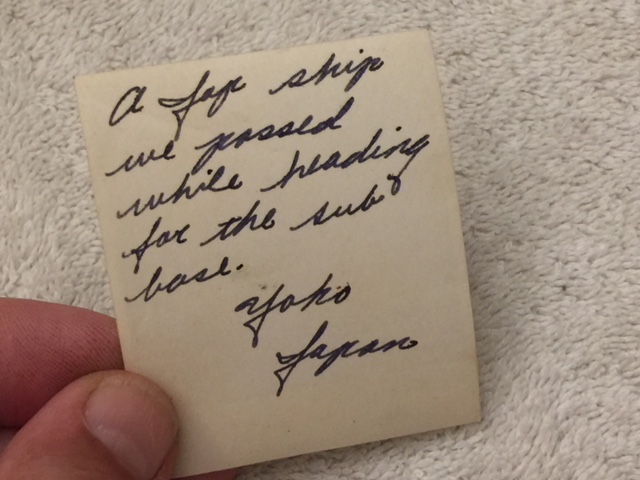 A Jap ship
we passed
while heading
for the sub
base.
Yoko
Japan